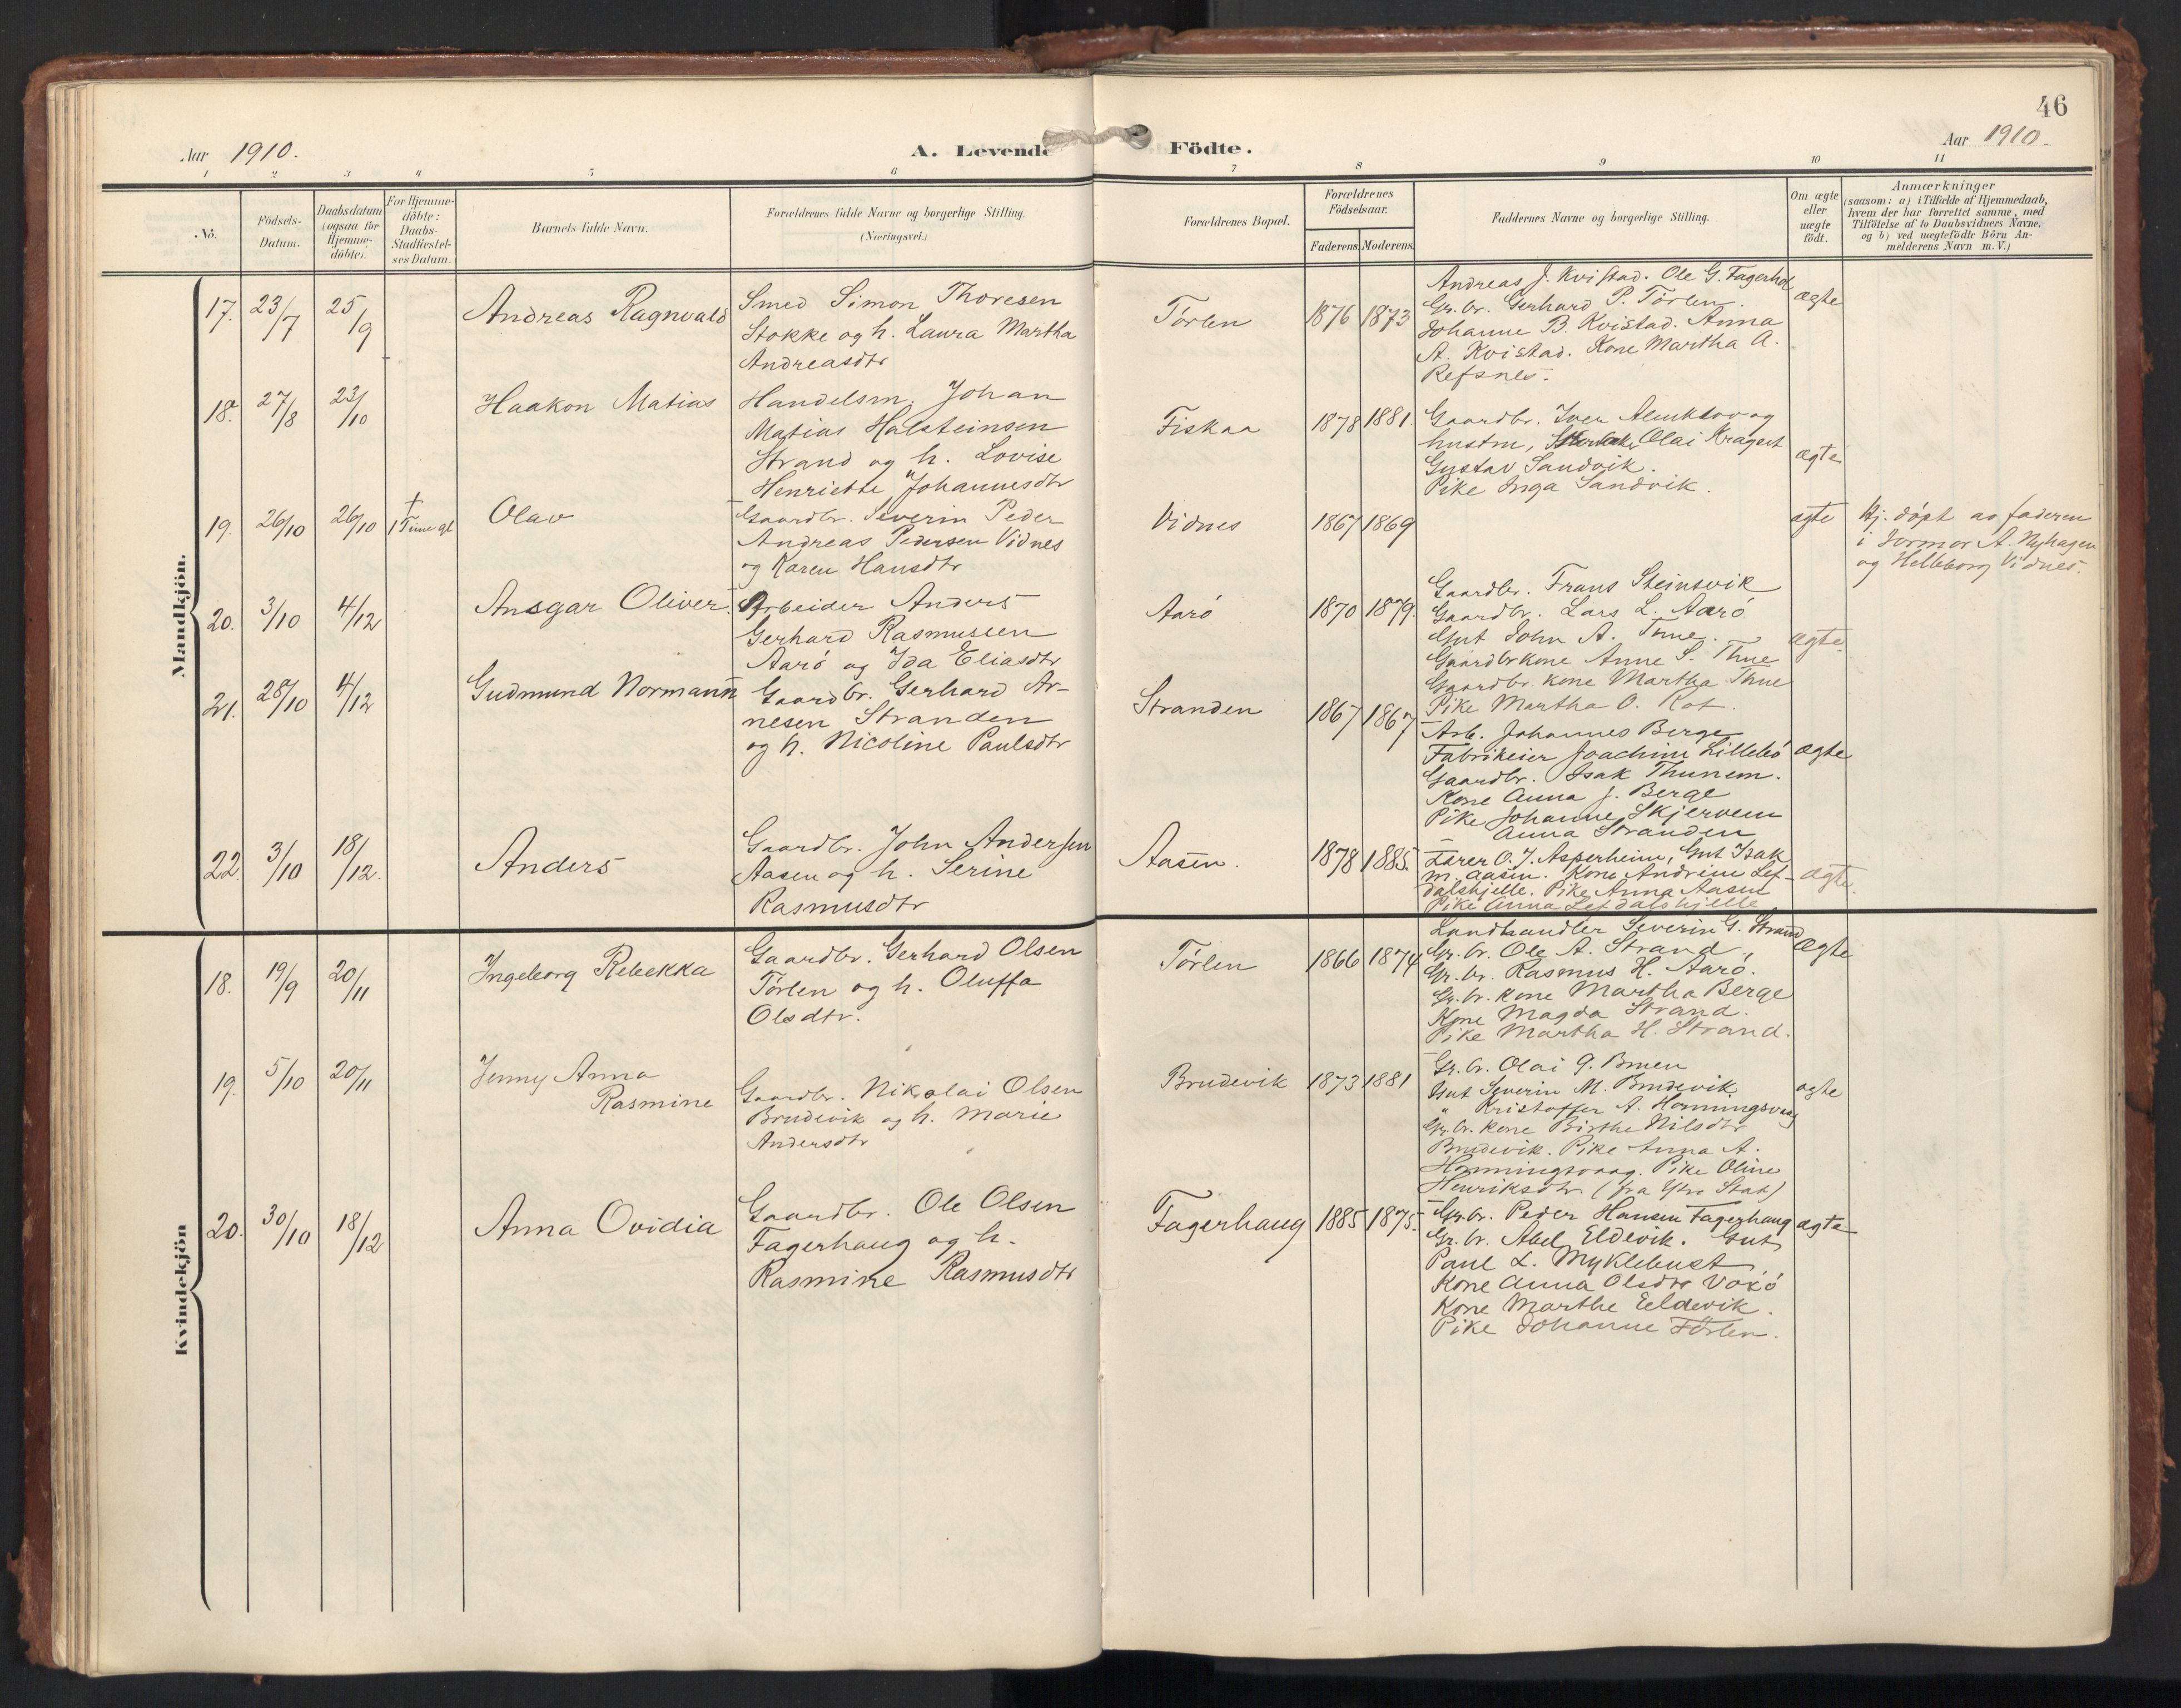 46
Aar 1910.
A. Levende Födte.
Aar 1910.
1 2 3 4 5 6 7 8 9 10 11
No.
Födsels-
Datum.
Daabsdatum
(ogsaa for
Hjemme-
döbte).
For Hjemme-
döbte:
Daabs-
Stadfæstel-
ses Datum.
Barnets fulde Navn.
Forældrenes fulde Navne og borgerlige Stilling.
(Næringsvei.)
Forældrenes Bopæl.
Forældrenes
Födselsaar.
Faderens. Moderens.
Faddernes Navne og borgerlige Stilling.
Om ægte
eller
uægte
födt.
Anmærkninger
(saasom: a) i Tilfælde af Hjemmedaab,
hvem der har forrettet samme, med
Tilföielse af to Daabsvidners Navne.
og b) ved uægtefödte Börn An-
melderens Navn m. V.)
Mandkjön.
17. 23/7 25/9
Andreas Ragnvald
Smed Simon Thoresen
Stokke og h. Laura Martha
Andreasdtr
Tørlen
1876 1873
Andreas J. Kvistad. Ole G. Fagerhol
Gr. br. Gerhard P. Tørlen.
Johanne B. Kvistad. Anna
A. Kvistad. Kone Martha A.
Refsnes.
ægte
18. 27/8 23/10
Haakon Matias
Handelsm. Johan
Matias Halsteinsen
Strand og h. Lovise
Henriette Johannesdtr
Fiskaa
1878 1881.
Gaardbr. Iver Almklov og
hustru, Olai Kragset
Gustav Sandvik.
Pike Inga Sandvik.
ægte
19. 26/10 26/10
†
1 Time gl
Olav
Gaardbr. Severin Peder
Andreas Pedersen Vidnes
og Karen Hansdtr
Vidnes
1867 1869
ægte
Hj. døpt av faderen
i A. Nyhagen
og Helleborg Vidnes.
20. 3/10 4/12
Ansgar Oliver.
Arbeider Anders
Gerhard Rasmussen
Aarö og Ida Eliasdtr
Aarö
1870 1879.
Gaardbr. Frans Steinsvik
Gaardbr. Lars L. Aarö
Gut John A. Tune.
Gaardbrkone Anne S. Thue
Gaardbr. kone Martha Thue
Pike Martha O. Kot.
ægte.
21. 28/10 4/12
Gudmund Normann
Gaardbr. Gerhard Ar-
nesen Stranden
og h. Nicoline Paulsdtr
Stranden
1867 1867
Arb. Johannes Berge
Fabrikeier Joachim Lillebö
Gaardbr. Isak Thunem.
Kone Anna J. Berge
Pike Johanne Skjervem
Anna Stranden
ægte
22. 3/10 18/12.
Anders
Gaardbr. John Andersen
Aasen og h. Serine
Rasmusdtr
Aasen.
1878 1885.
Lærer O. J. Asperheim, Gut Isak
M. Aasen. Kone Andrine Lef-
dalshjelle. Pike Anna Aasen
Pike Anna Lefdalshjelle
ægte.
Kvindekjön
18. 19/9 20/11
Ingeborg Rebekka
Gaardbr. Gerhard Olsen
Tørlen og h. Oluffa
Olsdtr.
Tørlen
1866 1874
Landhandler Severin G. Strand
Gr. br. Ole A. Strand,
Gr. br. Rasmus H. Aarø.
Gr. br. kone Martha Berge
Kone Magda Strand.
Pike Martha H. Strand.
ægte
19. 5/10 20/11
Jenny Anna
Rasmine
Gaardbr. Nikolai Olsen
Brudevik og h. Marie
Andersdtr
Brudevik
1873 1881
Gr. br. Olai G. Bruen
Gut Severin M. Brudevik
" Kristoffer A. Honningsvaag
Gr. br. kone Birthe Nilsdtr
Brudevik. Pike Anna A.
Honningsvaag. Pike Oline
Henriksdtr. (fra Ytre Stat)
ægte
20. 30/10 18/12
Anna Ovidia
Gaardbr. Ole Olsen
Fagerhaug og h.
Rasmine Rasmusdtr
Fagerhaug
1885 1875.
Gr. br. Peder Hansen Fagerhaug
Gr. br. Abel Eldevik. Gut
Paul L. Myklebust
Kone Anna Olsdtr Voxö
Kone Marthe Eeldevik.
Pike Johanne Tørlen.
ægte